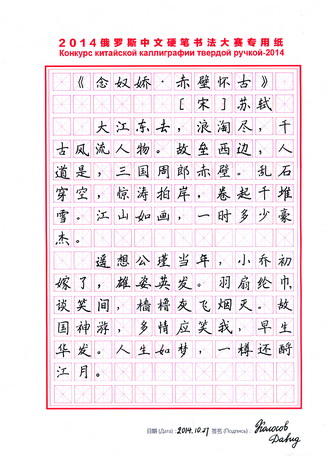 2014俄罗斯中文硬笔书法大赛专用纸
Конкурс китайской каллиграфии твердой ручкой-2014
《念奴娇·赤壁怀古》
[宋]苏轼
大江东去，浪淘尽，千
古风流人物。故垒西边，人
道是，三国周郎赤壁。乱石
穿空，惊涛拍岸，卷起千堆
雪。江山如画，一时多少豪
杰。
遥想公瑾当年，小乔初
嫁了，雄姿英发。羽扇纶巾，
谈笑间，樯橹灰飞烟灭。故
国神游，多情应笑我，早生
华发。人生如梦，一樽还酹
江月。
日期(Дата): 2014.10.27 签名(Подпись): Колосов
Давид